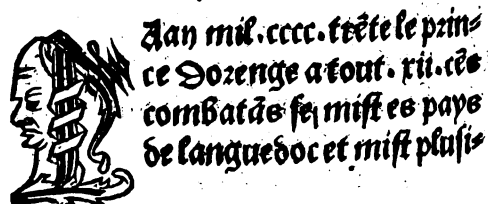 Aan mil.cccc.trẽte le prin⸗
ce Dorenge atout.xii.cẽs
combatãs se mist es pays
de languedoc et mist plusi⸗